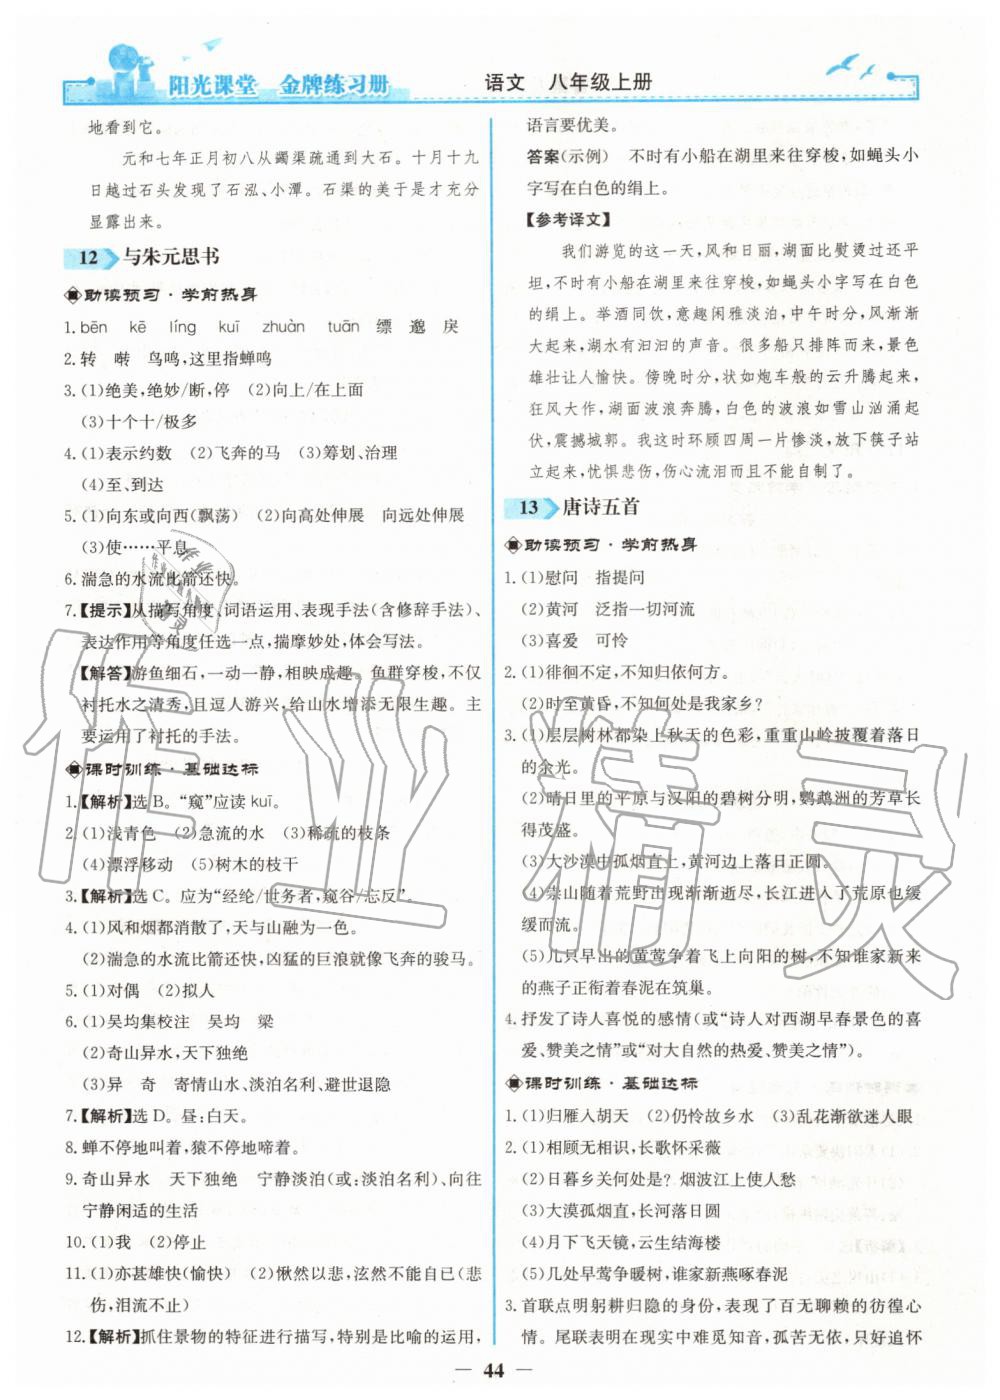 阳光课堂 金牌练习册 语文 八年级上册
地看到它。
元和七年正月初八从蠲渠疏通到大石。十月十九
日越过石头发现了石泓、小潭。石渠的美于是才充分
显露出来。
12 与朱元思书
助读预习·学前热身
1. bēn kē líng kuī zhuàn tuān 缥 邈 戾
2. 转 啭 鸟鸣,这里指蝉鸣
3. (1)绝美,绝妙/断,停 (2)向上/在上面
(3)十个十/极多
4. (1)表示约数 (2)飞奔的马 (3)筹划、治理
(4)至、到达
5. (1)向东或向西(飘荡) (2)向高处伸展 向远处伸展
(3)使……平息
6. 湍急的水流比箭还快。
7.【提示】从描写角度、词语运用、表现手法(含修辞手法)、
表达作用等角度任选一点,揣摩妙处,体会写法。
【解答】游鱼细石,一动一静,相映成趣。鱼群穿梭,不仅
衬托水之清秀,且逗人游兴,给山水增添无限生趣。主
要运用了衬托的手法。
课时训练·基础达标
1.【解析】选B。“窥”应读kuī。
2. (1)浅青色 (2)急流的水 (3)稀疏的枝条
(4)漂浮移动 (5)树木的枝干
3.【解析】选C。应为“经纶/世务者,窥谷/忘反”。
4. (1)风和烟都消散了,天与山融为一色。
(2)湍急的水流比箭还快,凶猛的巨浪就像飞奔的骏马。
5. (1)对偶 (2)拟人
6. (1)吴均集校注 吴均 梁
(2)奇山异水,天下独绝
(3)异 奇 寄情山水、淡泊名利、避世退隐
7.【解析】选D。昼:白天。
8. 蝉不停地叫着,猿不停地啼着。
9. 奇山异水 天下独绝 宁静淡泊(或:淡泊名利)、向往
宁静闲适的生活
10. (1)我 (2)停止
11. (1)亦甚雄快(愉快) (2)愀然以悲,泫然不能自已(悲
伤,泪流不止)
12.【解析】抓住景物的特征进行描写,特别是比喻的运用,
语言要优美。
答案(示例) 不时有小船在湖里来往穿梭,如蝇头小
字写在白色的绢上。
【参考译文】
我们游览的这一天,风和日丽,湖面比熨烫过还平
坦,不时有小船在湖里来往穿梭,如蝇头小字写在白色
的绢上。举酒同饮,意趣闲雅淡泊,中午时分,风渐渐
大起来,湖水有汩汩的声音。很多船只排阵而来,景色
雄壮让人愉快。傍晚时分,状如炮车般的云升腾起来,
狂风大作,湖面波浪奔腾,白色的波浪如雪山汹涌起
伏,震撼城郭。我这时环顾四周一片惨淡,放下筷子站
立起来,忧惧悲伤,伤心流泪而且不能自制了。
13 唐诗五首
助读预习·学前热身
1. (1)慰问 指提问
(2)黄河 泛指一切河流
(3)喜爱 可怜
2. (1)徘徊不定,不知归依何方。
(2)时至黄昏,不知何处是我家乡?
3. (1)层层树林都染上秋天的色彩,重重山岭披覆着落日
的余光。
(2)晴日里的平原与汉阳的碧树分明,鹦鹉洲的芳草长
得茂盛。
(3)大沙漠中孤烟直上,黄河边上落日正圆。
(4)崇山随着荒野的出现渐渐逝尽,长江进入了荒原也缓
缓而流。
(5)几只早出的黄莺争着飞上向阳的树,不知谁家新来
的燕子正衔着春泥在筑巢。
4. 抒发了诗人喜悦的感情(或“诗人对西湖早春景色的喜
爱、赞美之情”或“对大自然的热爱、赞美之情”)。
课时训练·基础达标
1. (1)归雁入胡天 (2)仍怜故乡水 (3)乱花渐欲迷人眼
2. (1)相顾无相识,长歌怀采薇
(2)日暮乡关何处是?烟波江上使人愁
(3)大漠孤烟直,长河落日圆
(4)月下飞天镜,云生结海楼
(5)几处早莺争暖树,谁家新燕啄春泥
3. 首联点明躬耕归隐的身份,表现了百无聊赖的彷徨心
情。尾联表明在现实中难觅知音,孤苦无依,只好追怀
44
作业精灵